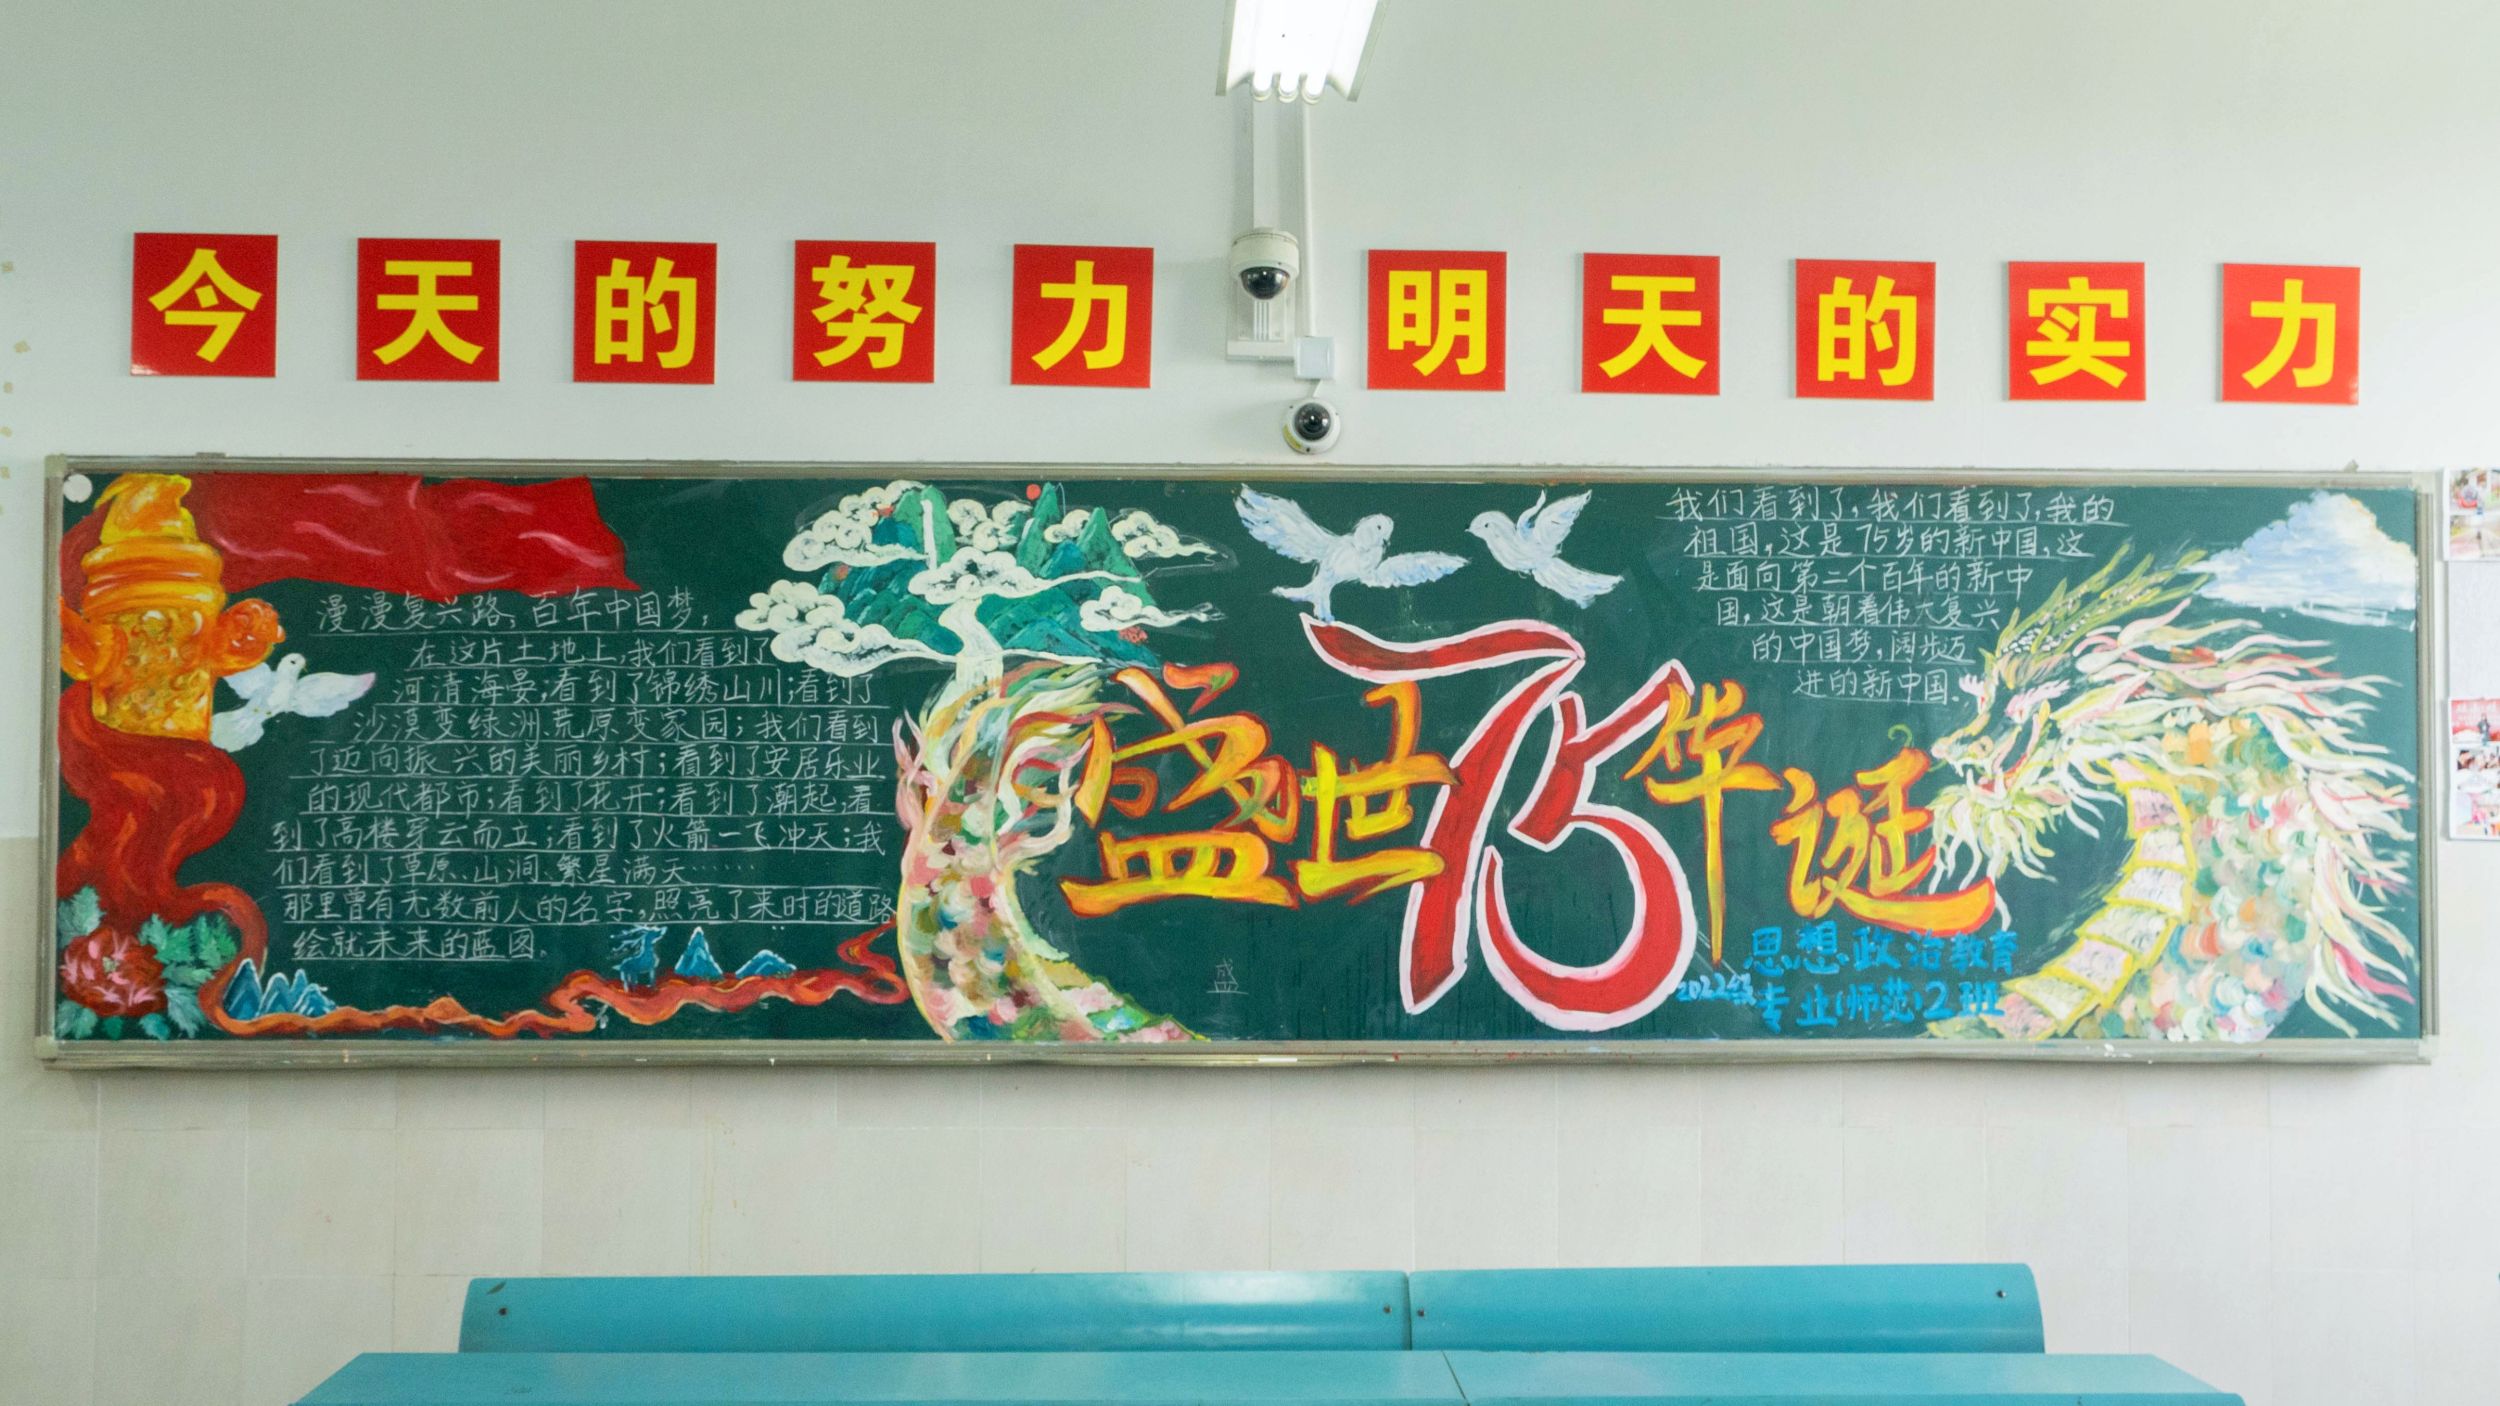 今天的努力 明天的实力
漫漫复兴路，百年中国梦，
在这片土地上，我们看到了
河清海晏；看到了锦绣山川；看到了
沙漠变绿洲、荒原变家园；我们看到
了迈向振兴的美丽乡村；看到了安居乐业
的现代都市；看到了花开；看到了潮起；看
到了高楼穿云而立；看到了火箭一飞冲天；我
们看到了草原、山涧、繁星满天……
那里曾有无数前人的名字，照亮了来时的道路
绘就未来的蓝图。
盛世75华诞
盛
我们看到了，我们看到了，我的
祖国，这是75岁的新中国，这
是面向第二个百年的新中
国，这是朝着伟大复兴
的中国梦，阔步迈
进的新中国。
思想政治教育
2022级专业(师范)2班